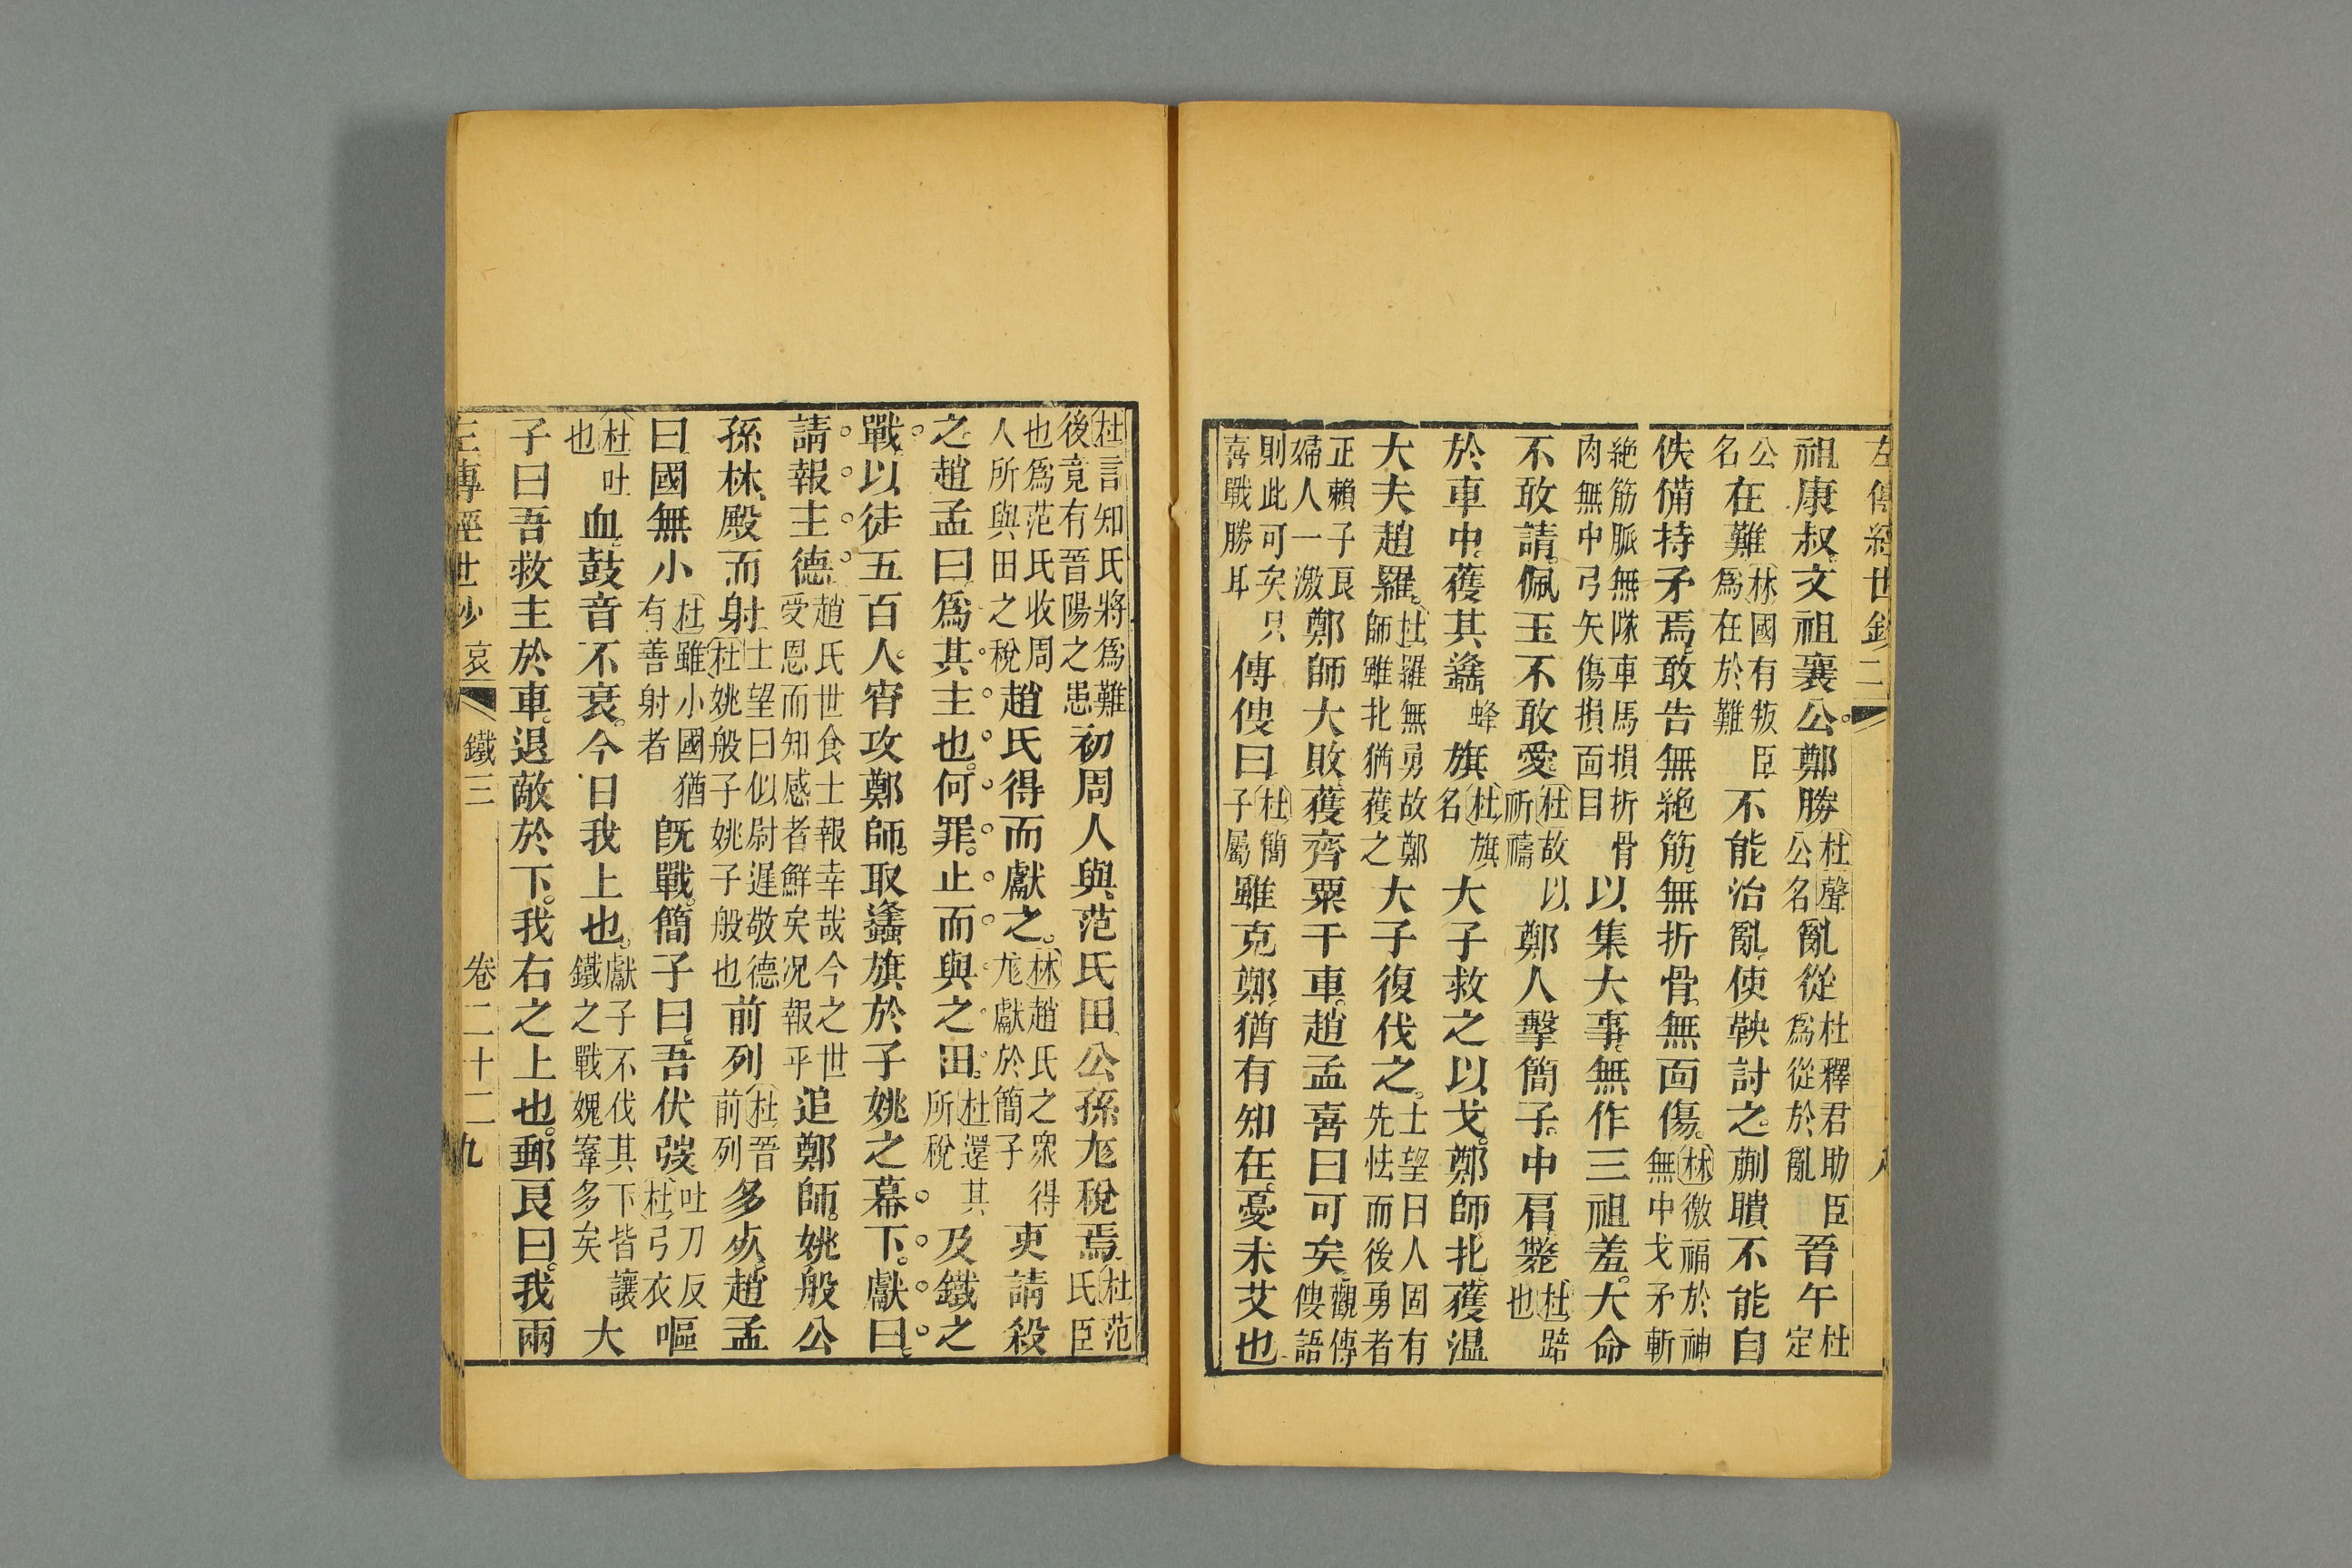 祖康叔文祖襄公鄭勝杜聲公名亂從杜釋君助臣爲從於亂晉午杜定
公名在難林國有叛臣爲在於難不能治亂使鞅討之蒯聵不能自
佚備持矛焉敢告無絶筋無折骨無面傷林徼福於神無中戈矛斬
絶筋脈無隊車馬損折骨肉無中弓矢傷損面目以集大事無作三祖羞大命
不敢請佩玉不敢愛杜故以祈禱鄭人擊簡子中肩斃杜踣也
於車中獲其蠭蜂旗杜旗名大子救之以戈鄭師北獲温
大夫趙羅杜羅無勇故鄭師雖北猶獲之大子復伐之士望曰人固有先怯而後勇者
正賴子良婦人一激鄭師大敗獲齊粟千車趙孟喜曰可矣觀傳傁語
則此可矣只喜戰勝耳傳傁曰杜簡子屬雖克鄭猶有知在憂未艾也
杜言知氏將爲難後竟有晉陽之患初周人與范氏田公孫尨稅焉杜范氏臣
也爲范氏收周人所與田之稅趙氏得而獻之林趙氏之衆得尨獻於簡子吏請殺
之趙孟曰爲其主也何罪止而與之田杜還其所稅及鐵之
戰以徒五百人宵攻鄭師取蠭旗於子姚之幕下獻曰
請報主德趙氏世食士報幸哉今之世受恩而知感者鮮矣况報乎追鄭師姚般公
孫林殿而射士望曰似尉遲敬德杜姚般子姚子般也前列杜晉前列多死趙孟
曰國無小杜雖小國猶有善射者既戰簡子曰吾伏弢吐刀反杜弓衣嘔
杜吐也血鼓音不衰今日我上也獻子不伐其下皆讓鐵之戰媿鞌多矣大
子曰吾救主於車退敵於下我右之上也郵良曰我兩
左傳經世鈔 哀 鐵三 卷二十二 九